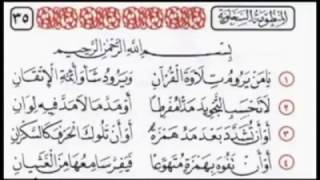 المنظومة السخاوية ٣٥
بِسْمِ اللهِ الرَّحْمٰنِ الرَّحِيمِ
١ يَا مَنْ يَرُومُ تِلَاوَةَ الْقُرْآنِ وَيَرُودُ شَأْوَ أَئِمَّةِ الْإِتْقَانِ
٢ لَا تَحْسِبِ التَّجْوِيدَ مَدًّا مُفْرِطًا أَوْ مَدَّ مَا لَا مَدَّ فِيهِ لِوَانِ
٣ أَوْ أَنْ تُشَدِّدَ بَعْدَ مَدٍّ هَمْزَةً أَوْ أَنْ تَلُوكَ الْحَرْفَ كَالسَّكْرَانِ
٤ أَوْ أَنْ تَفُوهَ بِهَمْزَةٍ مُتَهَوِّعًا فَيَفِرَّ سَامِعُهَا مِنَ الْغَثَيَانِ